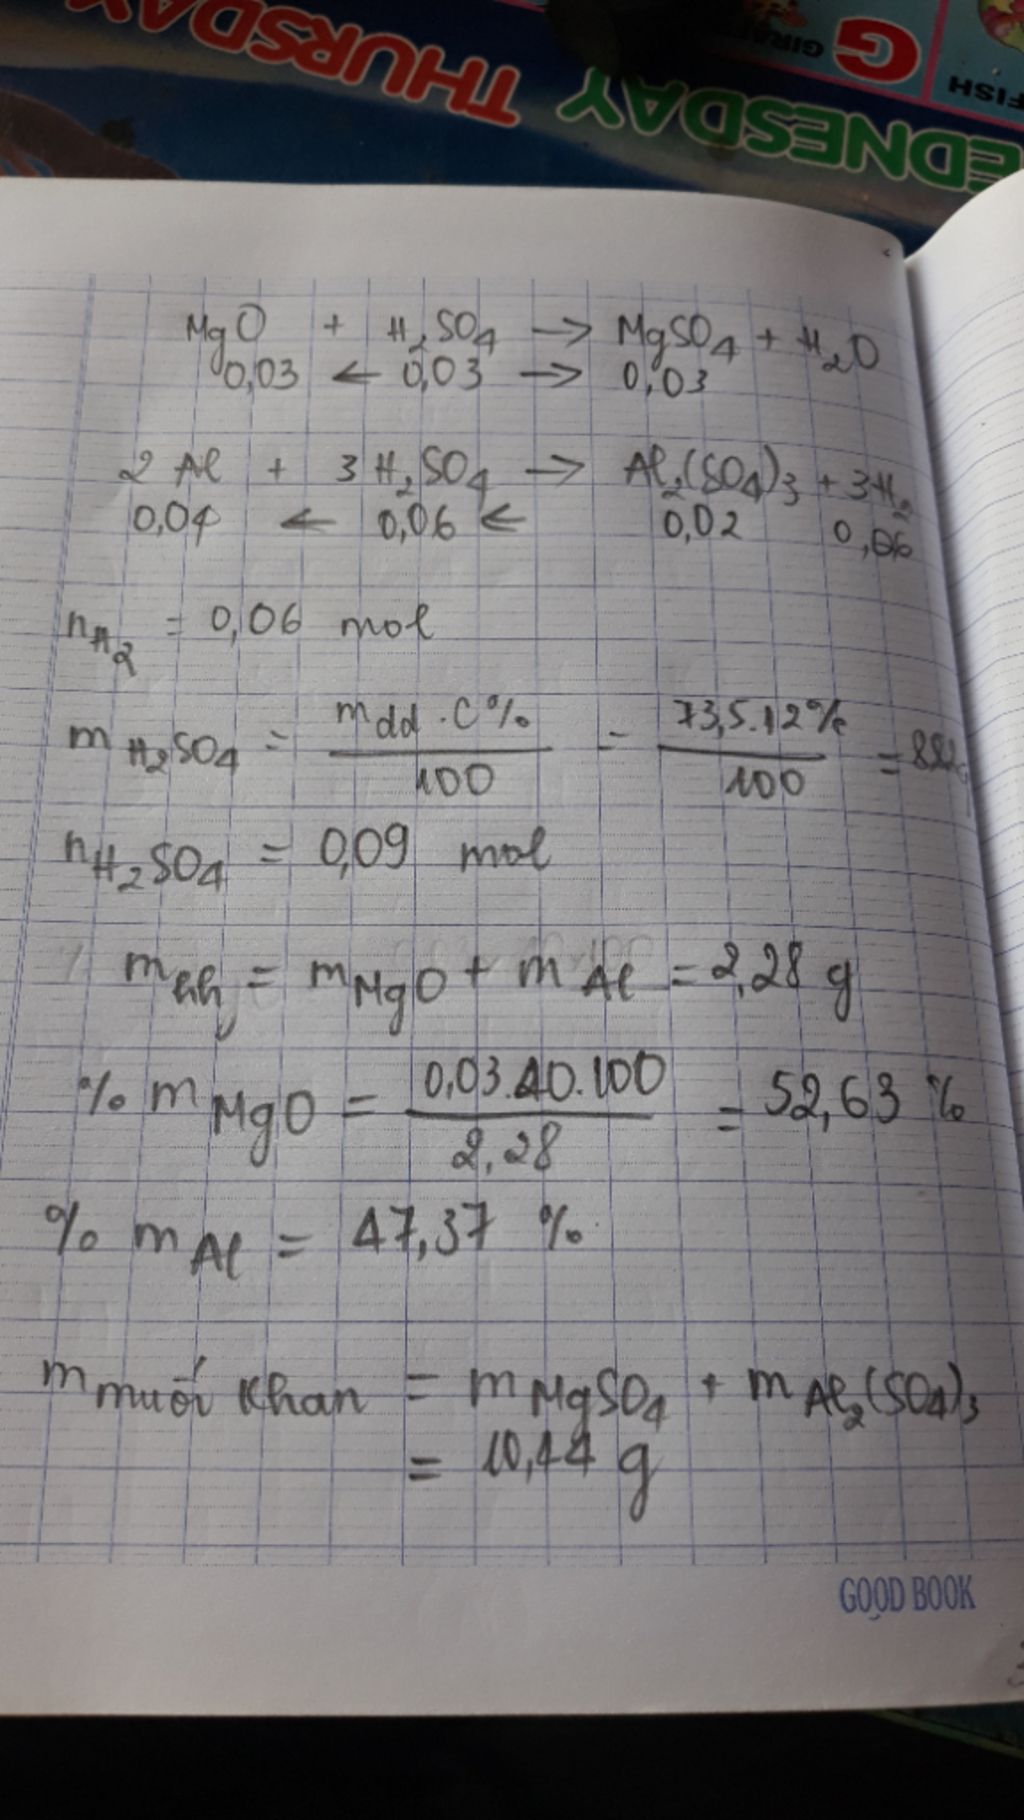 THURSDAY
EDNESDAY
G
FISH
MgO + H₂SO₄ → MgSO₄ + H₂O
0,03 ← 0,03 → 0,03
2 Al + 3 H₂SO₄ → Al₂(SO₄)₃ + 3H₂
0,04 ← 0,06 ← 0,02 0,06
nH₂ = 0,06 mol
mH₂SO₄ = mdd . C% / 100 = 73,5.12% / 100 =
nH₂SO₄ = 0,09 mol
mhh = mMgO + mAl = 2,28 g
% mMgO = 0,03.40.100 / 2,28 = 52,63 %
% mAl = 47,37 %
m muối khan = mMgSO₄ + mAl₂(SO₄)₃
= 10,44 g
GOOD BOOK